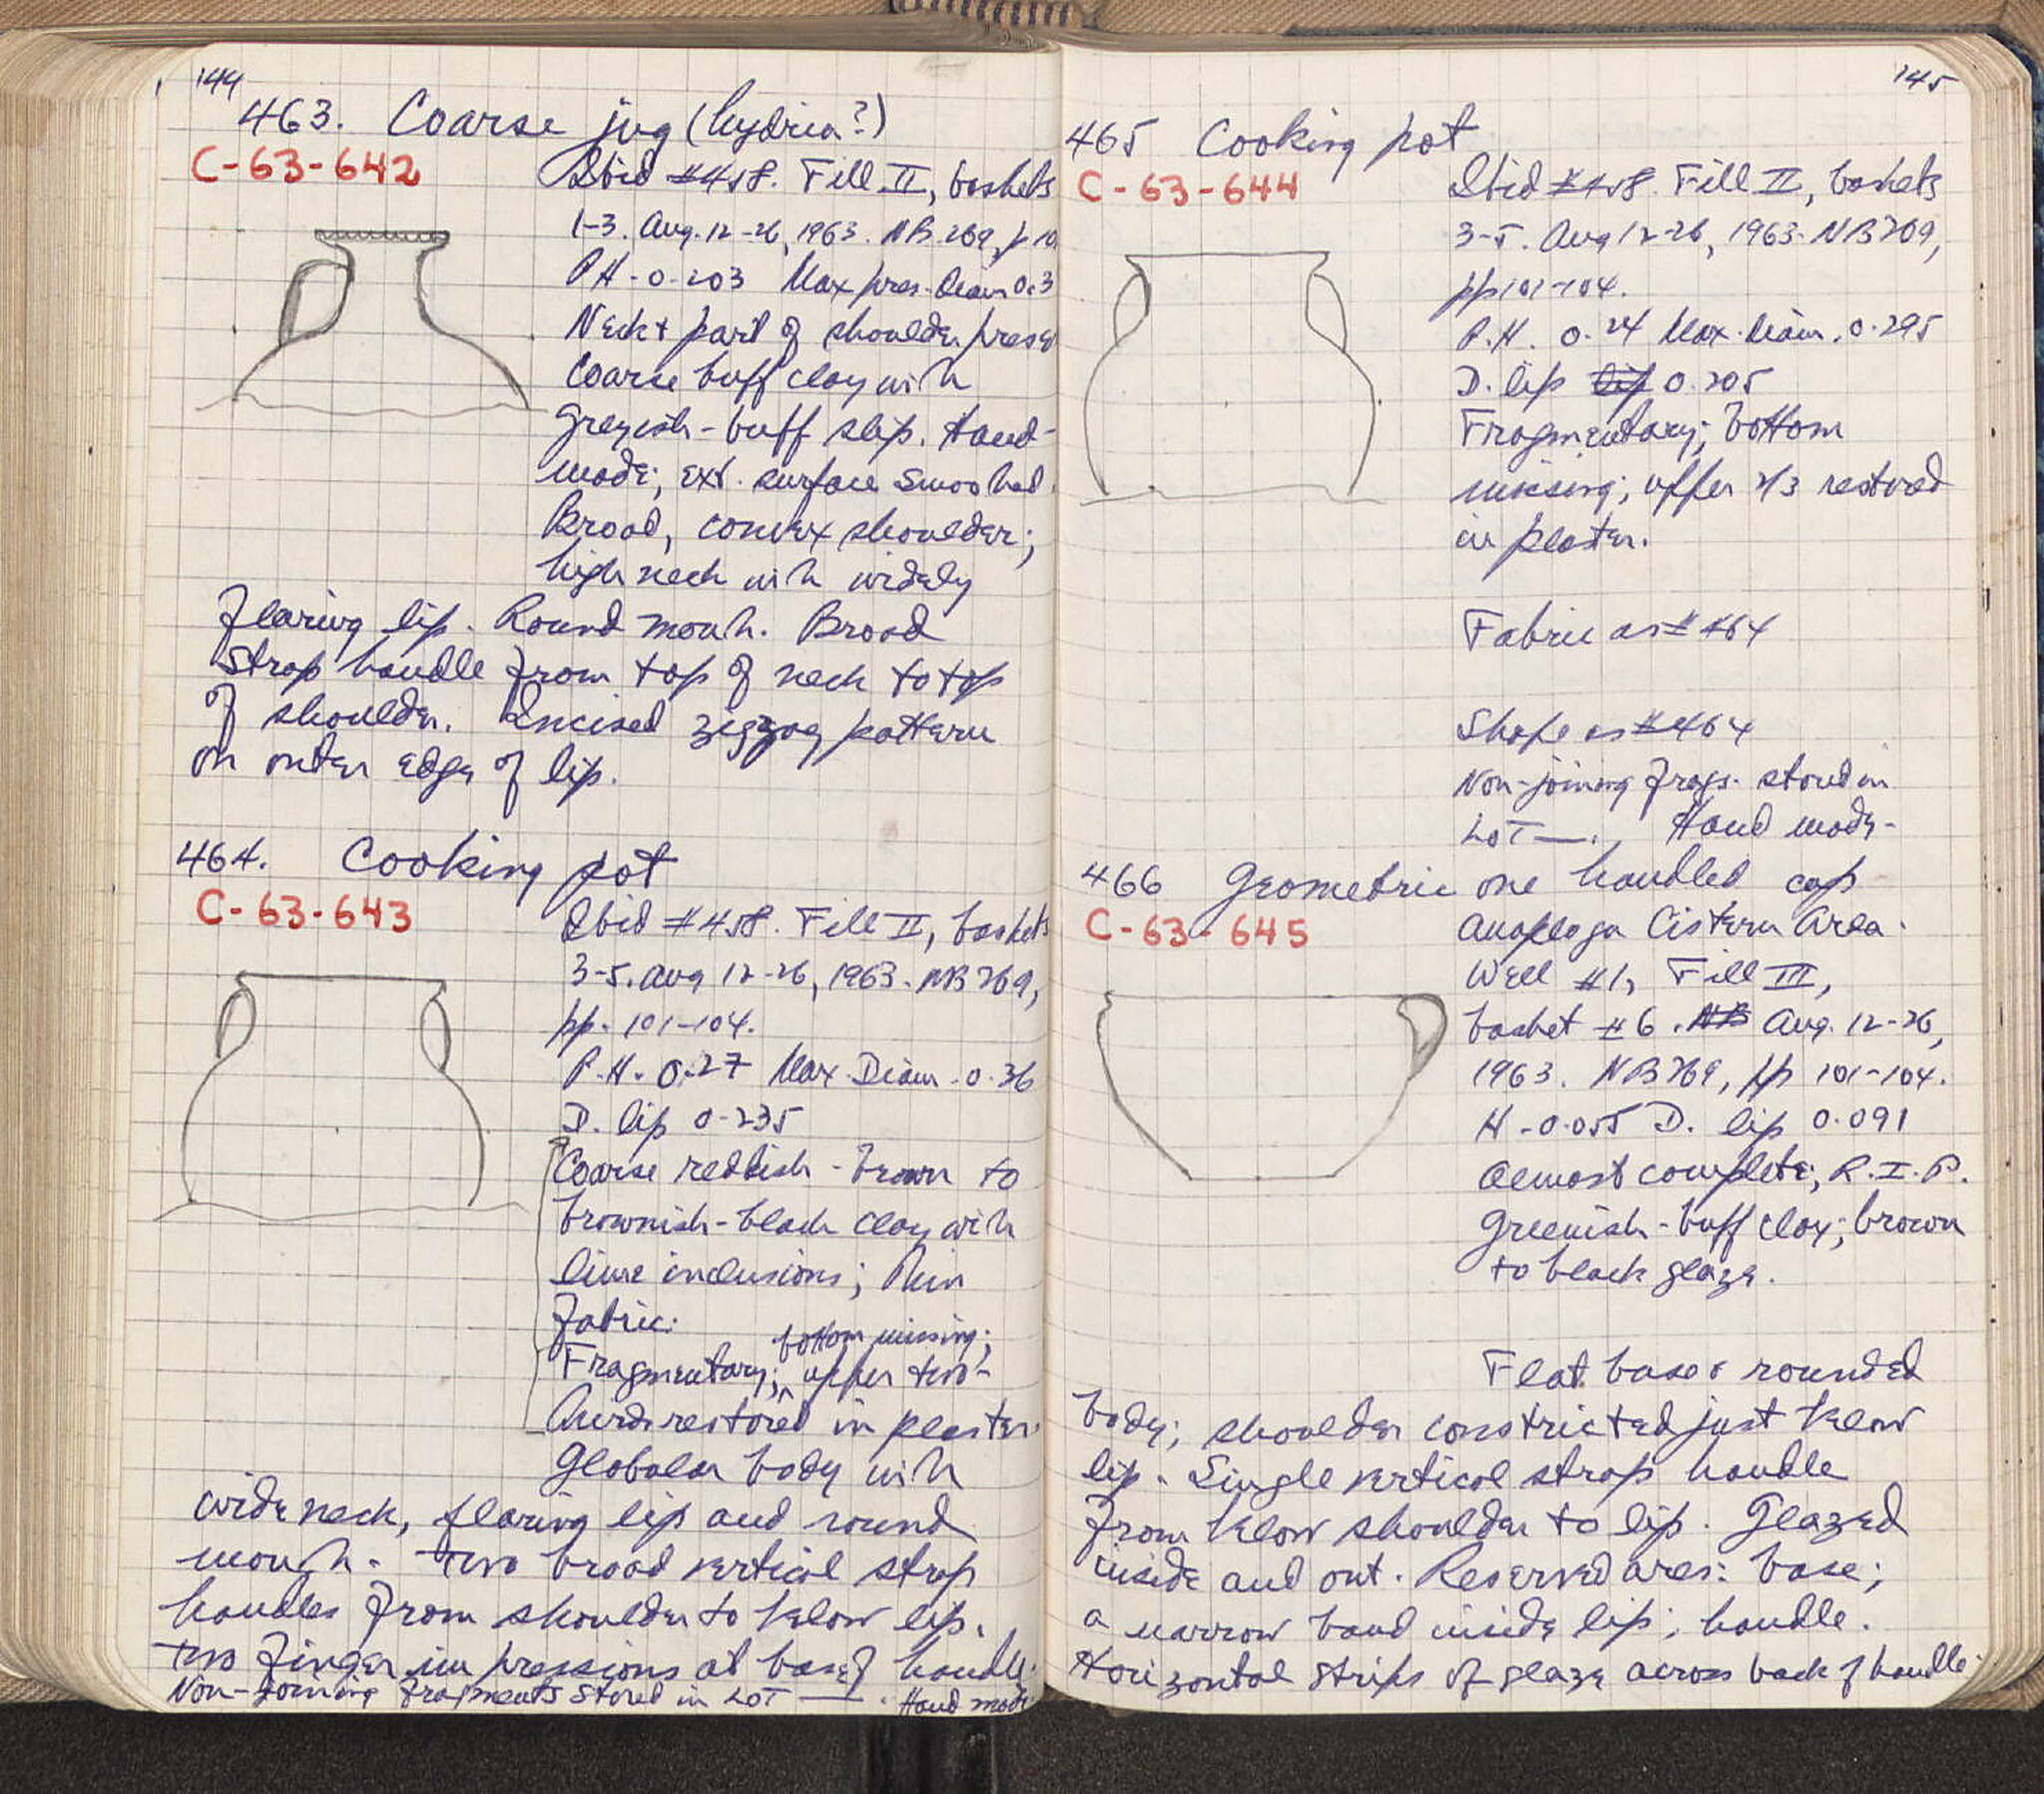 144
463. Coarse jug (hydria?)
C-63-642
Ibid #458. Fill II, baskets
1-3. Aug. 12-26, 1963. NB 269, p 10
PH - 0.203 Max pres. Diam 0.3
Neck + part of shoulder prese
Coarse buff clay with
greyish-buff slip. Hand-
made; ext. surface smoothed.
Broad, convex shoulder;
high neck with widely
flaring lip. Round mouth. Broad
strap handle from top of neck to top
of shoulder. Incised zigzag pattern
on outer edge of lip.
464. Cooking pot
C-63-643
Ibid #458. Fill II, baskets
3-5. Aug 12-26, 1963. NB 269,
pp. 101-104.
P.H. 0.27 Max. Diam. 0.36
D. lip 0.235
Coarse reddish-brown to
brownish-black clay with
lime inclusions; thin
fabric.
bottom missing;
Fragmentary; upper two-
thirds restored in plaster.
Globular body with
wide neck, flaring lip and round
mouth. Two broad vertical strap
handles from shoulder to below lip.
Two finger impressions at base of handle.
Non-joining fragments stored in LOT —. Hand made
145
465 Cooking pot
C-63-644
Ibid #458. Fill II, baskets
3-5. Aug 12-26, 1963. NB 269,
pp 101-104.
P.H. 0.24 Max. Diam. 0.295
D. lip lip 0.205
Fragmentary; bottom
missing; upper 2/3 restored
in plaster.
Fabric as #464
Shape as #464
Non-joining frags. stored in
LOT —. Hand made.
466 Geometric one handled cup
C-63-645
Anaploga Cistern Area.
Well #1, Fill III,
basket #6. NB Aug. 12-26,
1963. NB 269, pp 101-104.
H - 0.055 D. lip 0.091
Almost complete; R.I.P.
Greenish-buff clay; brown
to black glaze.
Flat base & rounded
body; shoulder constricted just below
lip. Single vertical strap handle
from below shoulder to lip. Glazed
inside and out. Reserved area: base;
a narrow band inside lip; handle.
Horizontal strips of glaze across back of handle.